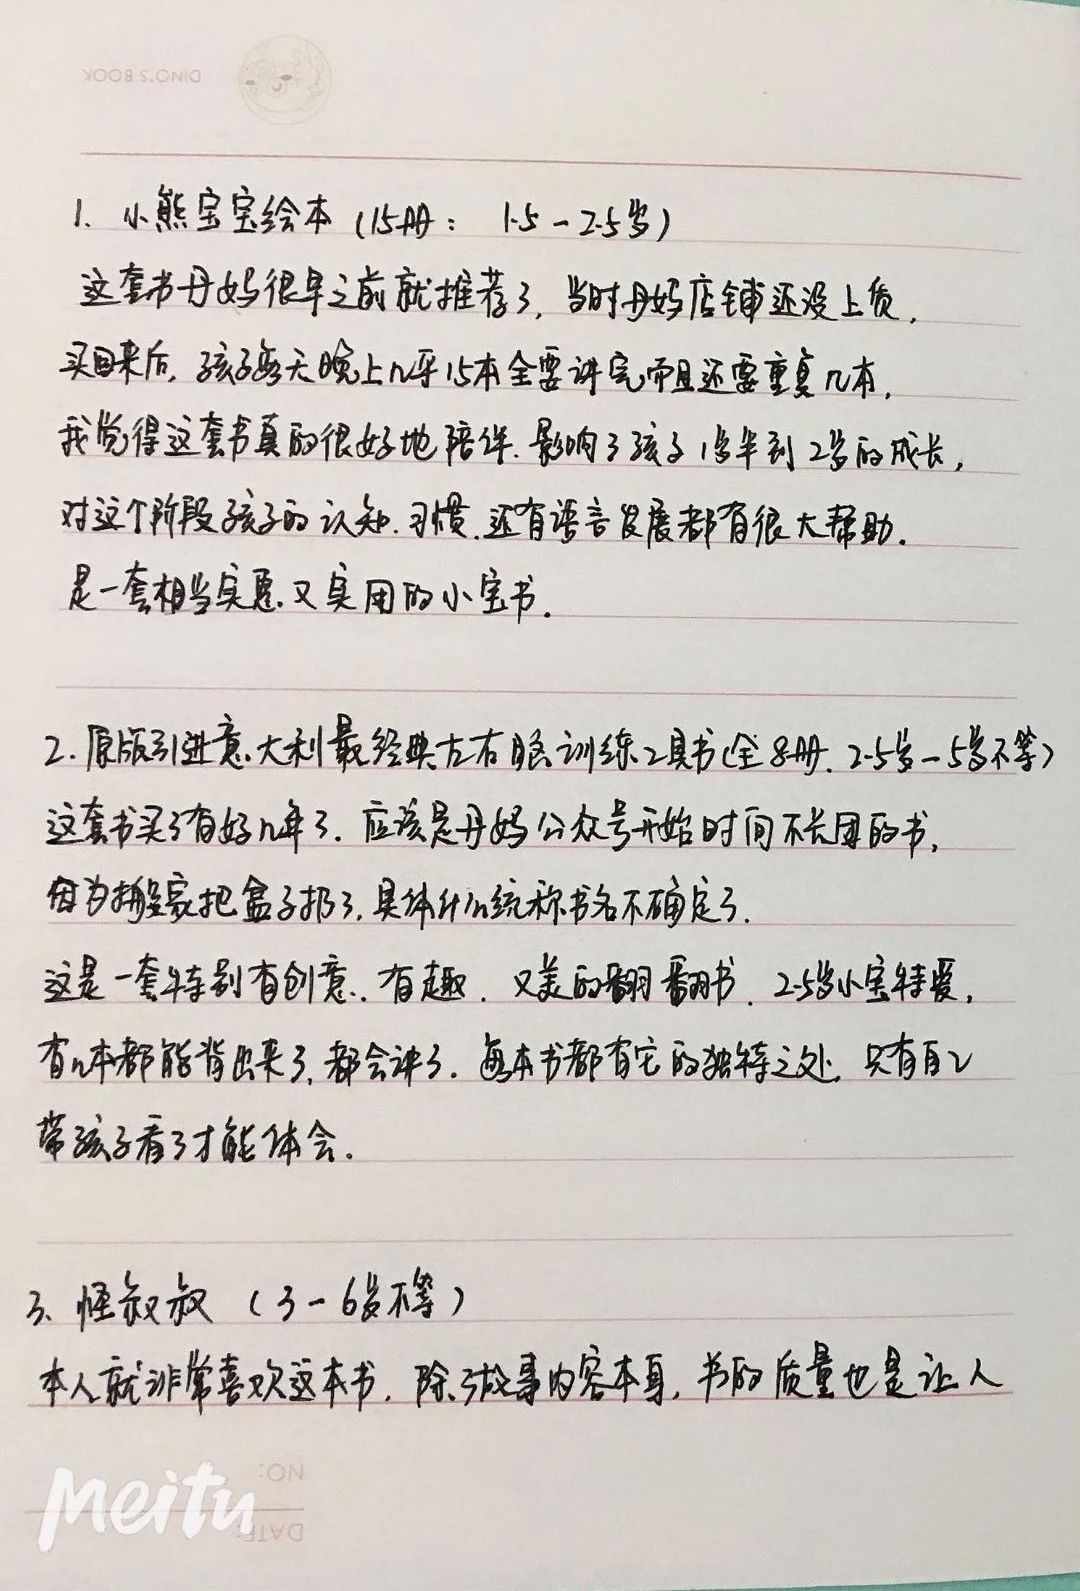 DINO'S BOOK
1. 小熊宝宝绘本（15册： 1.5－2.5岁）
这套书丹妈很早之前就推荐了，当时丹妈店铺还没上货，
买回来后，孩子每天晚上几乎15本全要讲完而且还要重复几本，
我觉得这套书真的很好地陪伴、影响了孩子1岁半到2岁的成长，
对这个阶段孩子的认知、习惯、还有语言发展都有很大帮助。
是一套相当实惠、又实用的小宝书。
2. 原版引进意大利最经典左右脑训练工具书（全8册、2.5岁－5岁不等）
这套书买了有好几年了、应该是丹妈公众号开始时间不长团的书，
因为搬家把盒子扔了，具体什么统称书名不确定了．
这是一套特别有创意、有趣、又美的翻翻书、2.5岁小宝特爱，
有几本都能背出来了，都会讲了．每本书都有它的独特之处，只有自己
带孩子看了才能体会．
3、怪叔叔（3－6岁不等）
本人就非常喜欢这本书，除了故事内容本身，书的质量也是让人
NO:
DATE:
Meitu